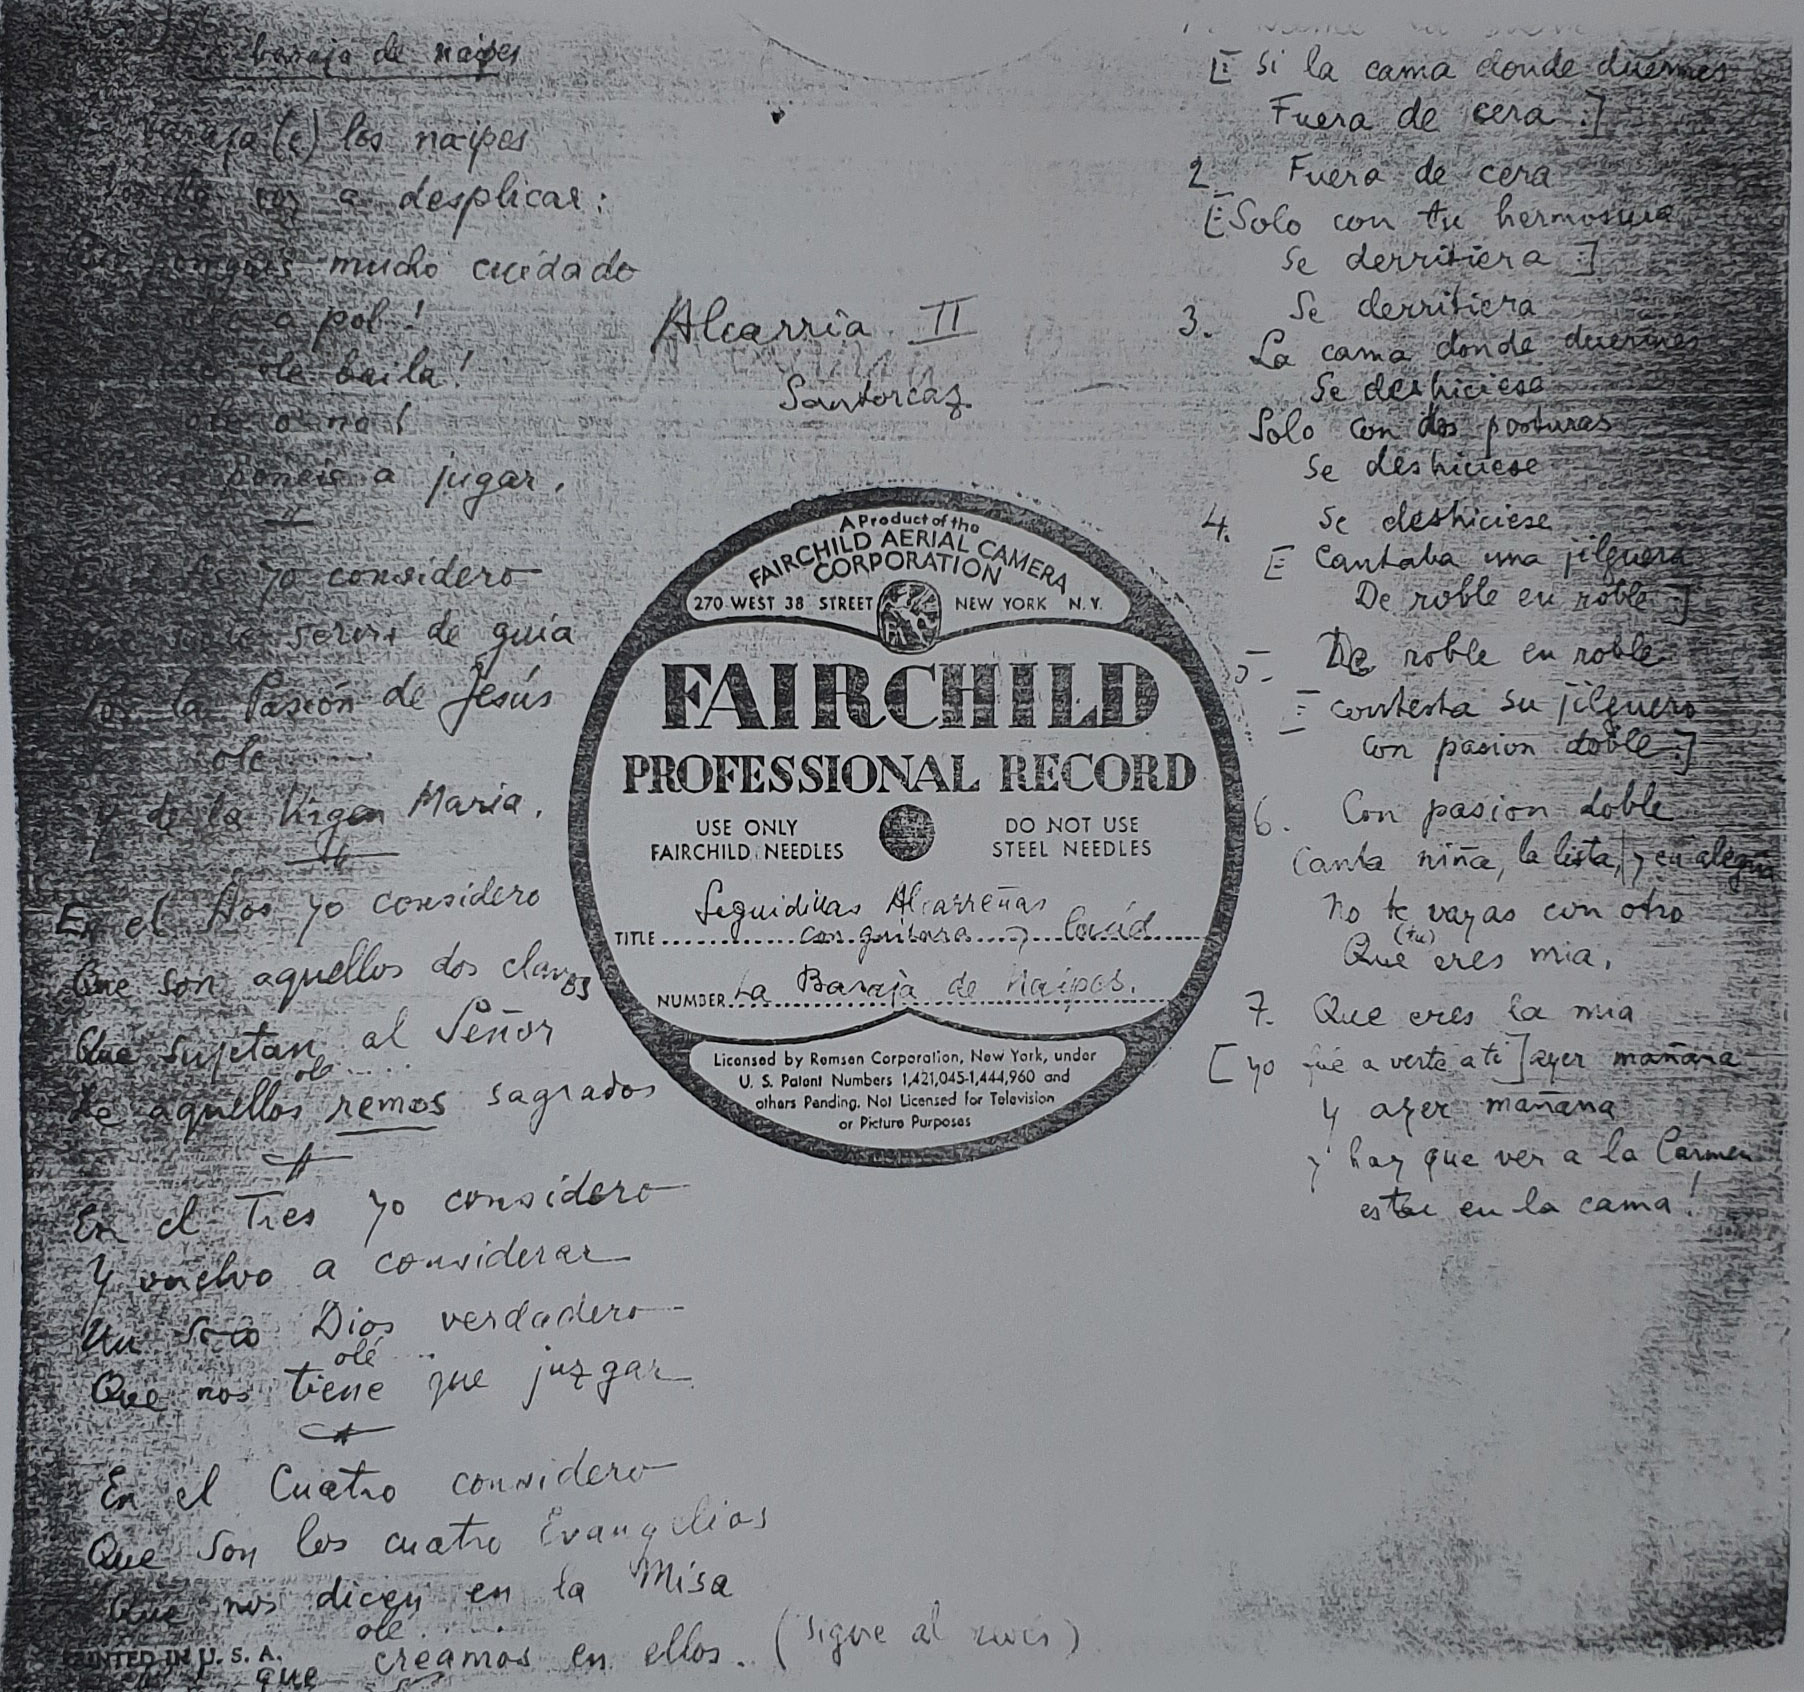 baraja de naipes
baraja (e) los naipes
voy a desplicar:
pongáis mucho cuidado
a pol!
ole baila!
ole o no!
ponéis a jugar.
As yo considero
servir de guía
Por la Pasión de Jesús
ole
y de la Virgen Maria.
En el Dos yo considero
Que son aquellos dos clavos
Que sujetan al Señor
ole.....
De aquellos remos sagrados
En el Tres yo considero
Y vuelvo a considerar
Un solo Dios verdadero
olé ...
Que nos tiene que juzgar
En el Cuatro considero
Que son los cuatro Evangelios
Que nos dicen en la Misa
olé.....
que creamos en ellos. (sigue al
PRINTED IN U. S. A.
Alcarria II
Santorcaz
A Product of the
FAIRCHILD AERIAL CAMERA
CORPORATION
270 WEST 38 STREET NEW YORK N.Y.
FAIRCHILD
PROFESSIONAL RECORD
USE ONLY
FAIRCHILD NEEDLES
DO NOT USE
STEEL NEEDLES
Seguidillas Alcarreñas
TITLE con guitara y laúd
NUMBER La Baraja de Naipes.
Licensed by Remsen Corporation, New York, under
U. S. Patent Numbers 1,421,045-1,444,960 and
others Pending. Not Licensed for Television
or Picture Purposes
[: Si la cama donde duermes
Fuera de cera :]
2. Fuera de cera
[: Solo con tu hermosura
Se derritiera :]
3. Se derritiera
La cama donde duermes
Se deshiciese
Solo con dos posturas
Se deshiciese
4. Se deshiciese
[: Cantaba una jilguera
De roble en roble :]
5. De roble en roble
[: contesta su jilguero
Con pasion doble :]
6. Con pasion doble
Canta niña, la lista, y en alegría
No te vayas con otro
(tu)
Que eres mia.
7. Que eres la mia
[yo fué a verte a ti] ayer mañana
Y ayer mañana
y hay que ver a la Carmen
estar en la cama!